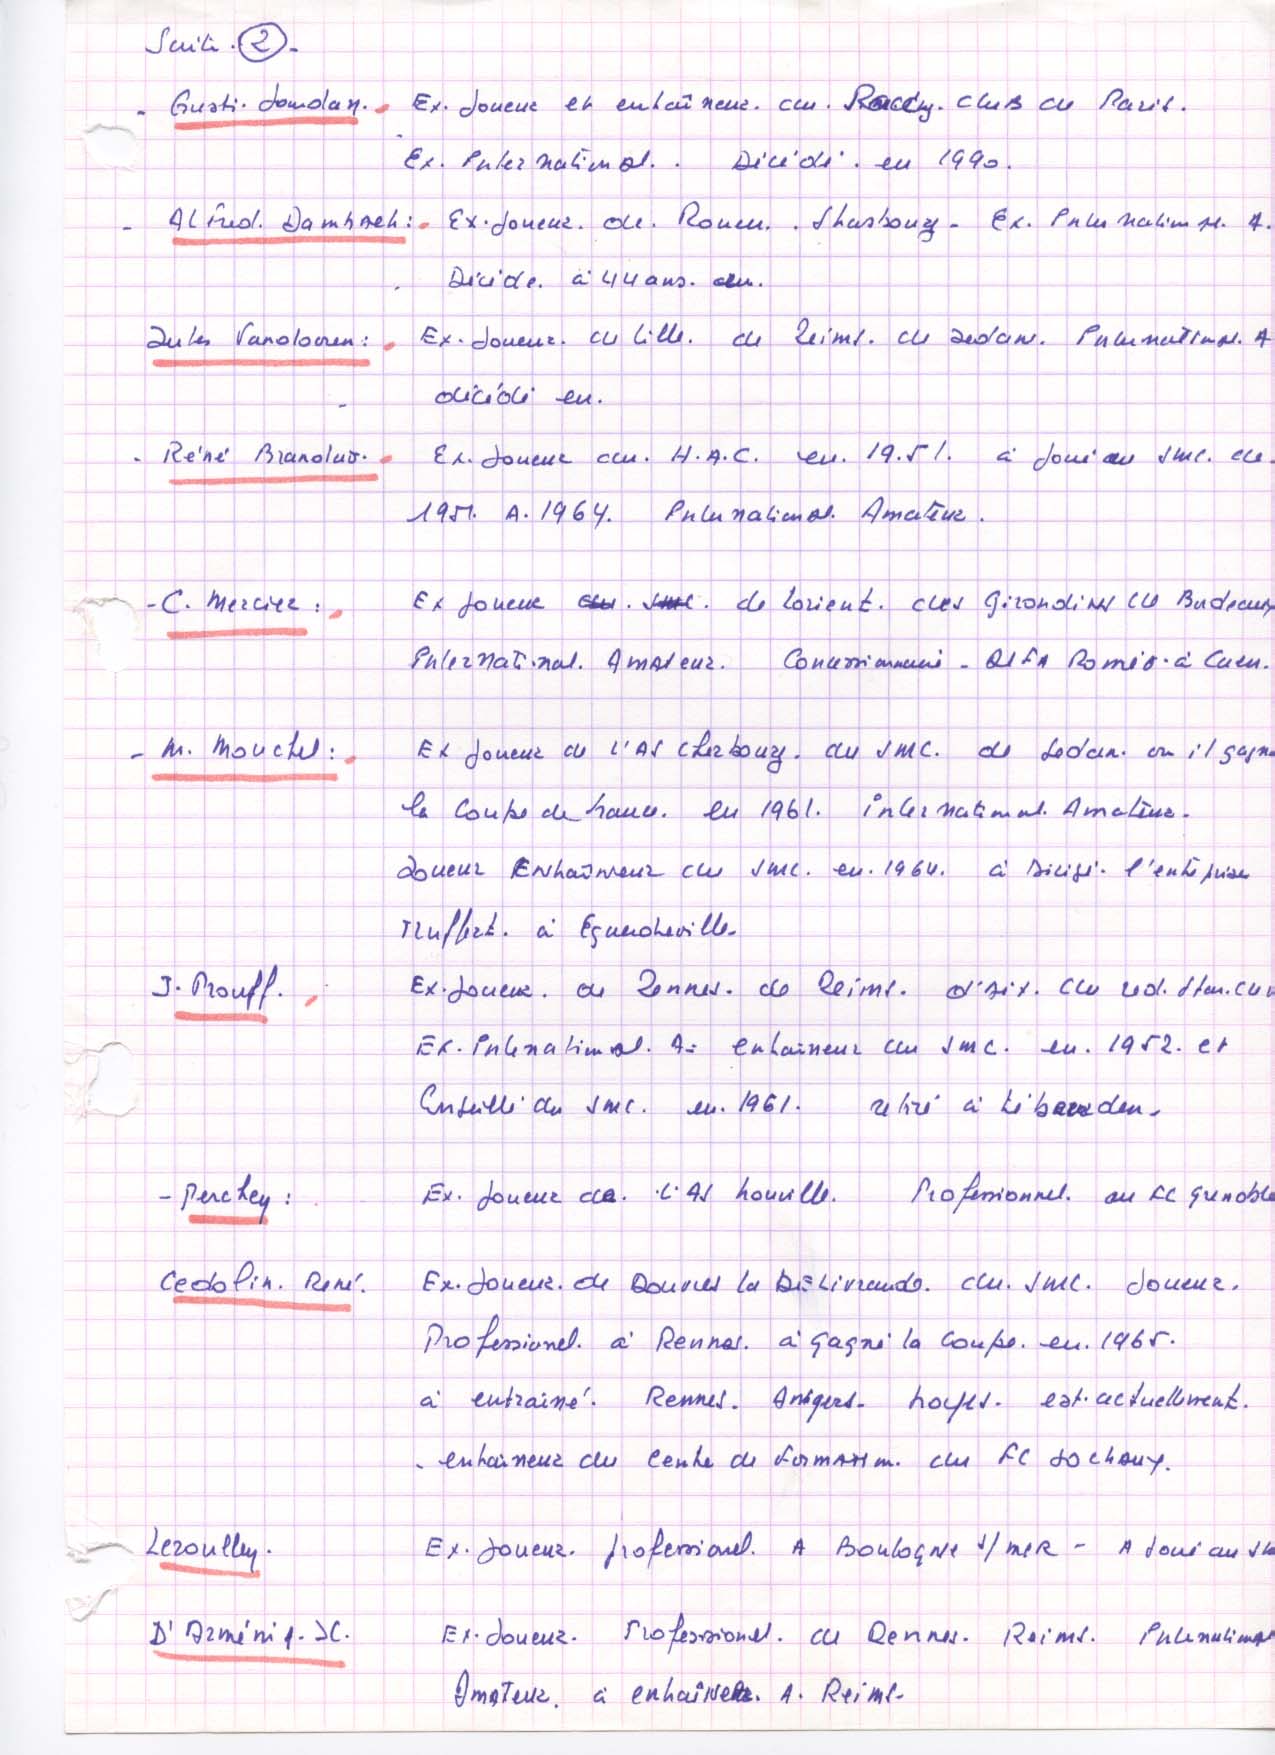 Suite. 2 -
- Gusti. Jourdan. Ex. Joueur et entraîneur. du. Racing. Club de Paris.
Ex. International. . Décédé. en 1990.
- Alfred. Dambach: - Ex. Joueur. de. Rouen. . Strasbourg - Ex. International. A.
Décide. à 44 ans. au.
Jules Vandooren: Ex. Joueur. de Lille. de Reims. de Sedan. International. A
décédé en.
- Réné Brandus. Ex. Joueur du. H.A.C. en. 1951. à joué au SMC. de
1951. A. 1964. International. Amateur.
- C. Mercier: Ex Joueur du. SMC. de Lorient. des Girondins de Bordeaux
International. Amateur. Concessionnaire - Alfa Roméo. à Caen.
- M. Mouchel: Ex Joueur de L'AS Cherbourg. du SMC. de Sedan. ou il gagne
la Coupe de France. en 1961. international. Amateur.
Joueur Entraîneur du SMC. en. 1964. à Dirigé. l'entreprise
Truffert. à Equeurdreville.
J. Prouff. Ex. Joueur. de Rennes. de Reims. d'Aix. du red. Star.
Ex. International. A= entraineur du SMC. en. 1952. et
Conseillé du SMC. en. 1961. retiré à
- Perchey: Ex. Joueur de. L'AS Trouville. Professionnel. au FC Grenoble
Cedolin. René. Ex. Joueur. de Douvres la Délivrande. du. SMC. Joueur.
Professionel. à Rennes. à gagné la Coupe. en. 1965.
à entrainé. Rennes. Angers. Troyes. est. actuellement.
. entraineur du Centre de Formation. du FC Sochaux.
Leroulley. Ex. Joueur. professionel. A Boulogne s/mer - A Joué au
D'Arménia. JC. Ex. Joueur. Professionel. de Rennes. Reims. International
Amateur. à entraîner. A. Reims-